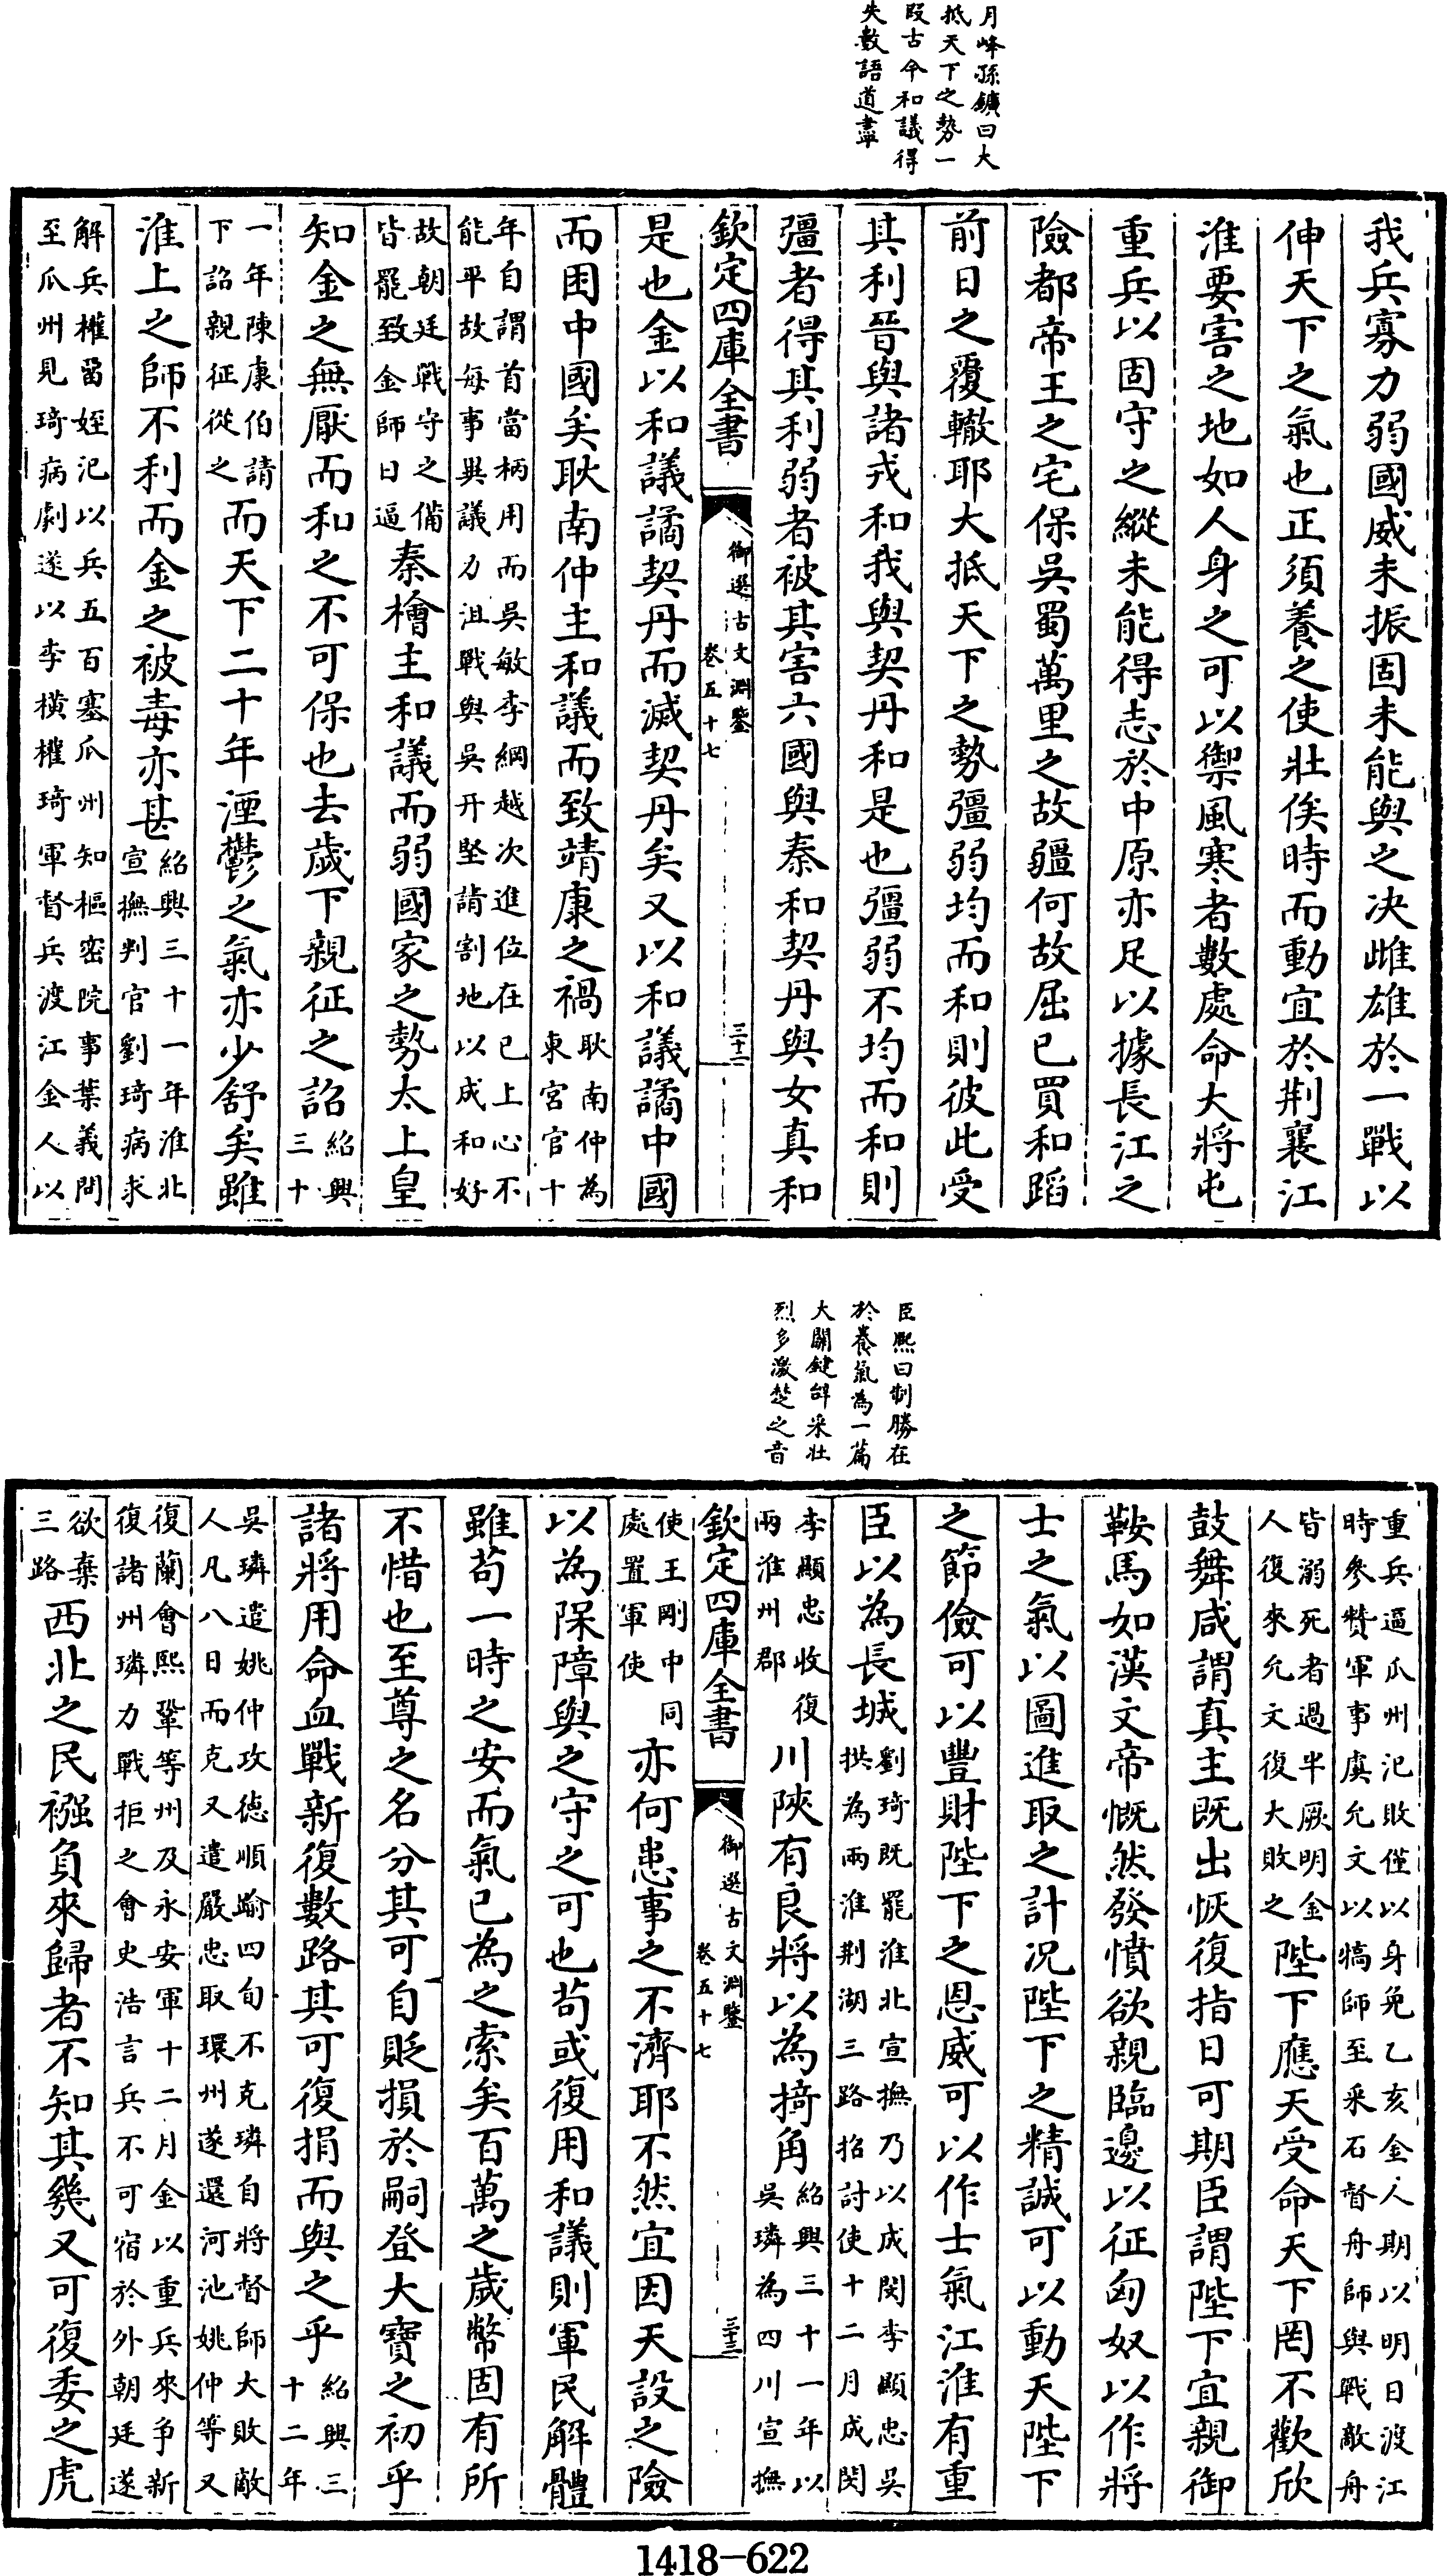 月峰孫鑛曰大
抵天下之勢一
段古今和議得
失數語道盡
我兵寡力弱國威未振固未能與之决雌雄於一戰以
伸天下之氣也正須養之使壯俟時而動宜於荆襄江
淮要害之地如人身之可以禦風寒者數處命大將屯
重兵以固守之縱未能得志於中原亦足以據長江之
險都帝王之宅保吳蜀萬里之故疆何故屈已買和蹈
前日之覆轍耶大抵天下之勢彊弱均而和則彼此受
其利晉與諸戎和我與契丹和是也彊弱不均而和則
彊者得其利弱者被其害六國與秦和契丹與女真和
欽定四庫全書 御選古文淵鑒 卷五十七 三十二
是也金以和議譎契丹而滅契丹矣又以和議譎中國
而困中國矣耿南仲主和議而致靖康之禍耿南仲為
東宮官十
年自謂首當柄用而吳敏李綱越次進位在已上心不
能平故每事異議力沮戰與吳幵堅請割地以成和好
故朝廷戰守之備
皆罷致金師日逼秦檜主和議而弱國家之勢太上皇
知金之無厭而和之不可保也去歲下親征之詔紹興
三十
一年陳康伯請
下詔親征從之而天下二十年湮鬱之氣亦少舒矣雖
淮上之師不利而金之被毒亦甚紹興三十一年淮北
宣撫判官劉琦病求
解兵權留姪汜以兵五百塞瓜州知樞密院事葉義問
至瓜州見琦病劇遂以李橫權琦軍督兵渡江金人以
臣熙曰制勝在
於養氣為一篇
大關鍵辭采壯
烈多激楚之音
重兵逼瓜州汜敗僅以身免乙亥金人期以明日渡江
時參贊軍事虞允文以犒師至采石督舟師與戰敵舟
皆溺死者過半厥明金
人復來允文復大敗之陛下應天受命天下罔不歡欣
鼓舞咸謂真主既出恢復指日可期臣謂陛下宜親御
鞍馬如漢文帝慨然發憤欲親臨邊以征匈奴以作將
士之氣以圖進取之計況陛下之精誠可以動天陛下
之節儉可以豐財陛下之恩威可以作士氣江淮有重
臣以為長城劉琦既罷淮北宣撫乃以成閔李顯忠吳
拱為兩淮荆湖三路招討使十二月成閔
李顯忠收復
兩淮州郡川陝有良將以為掎角紹興三十一年以
吳璘為四川宣撫
欽定四庫全書 御選古文淵鑒 卷五十七 三十三
使王剛中同
處置軍使亦何患事之不濟耶不然宜因天設之險
以為保障與之守之可也苟或復用和議則軍民解體
雖苟一時之安而氣已為之索矣百萬之歲幣固有所
不惜也至尊之名分其可自貶損於嗣登大寶之初乎
諸將用命血戰新復數路其可復捐而與之乎紹興三
十二年
吳璘遣姚仲攻德順踰四旬不克璘自將督師大敗敵
人凡八日而克又遣嚴忠取環州遂還河池姚仲等又
復蘭會熙鞏等州及永安軍十二月金以重兵來爭新
復諸州璘力戰拒之會史浩言兵不可宿於外朝廷遂
欲棄
三路西北之民襁負來歸者不知其幾又可復委之虎
1418—622